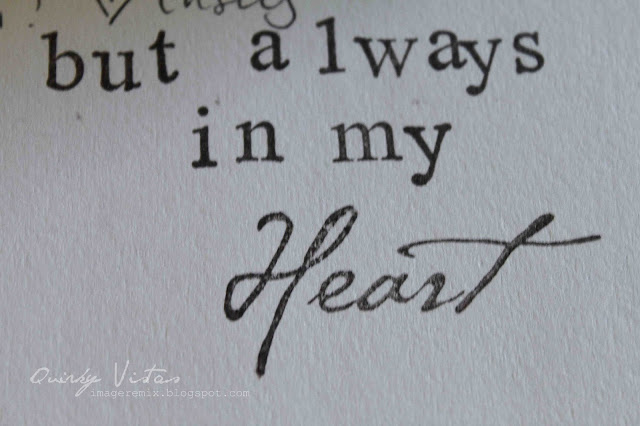 but always
in my
Heart
Quirky Vistas
imageremix.blogspot.com